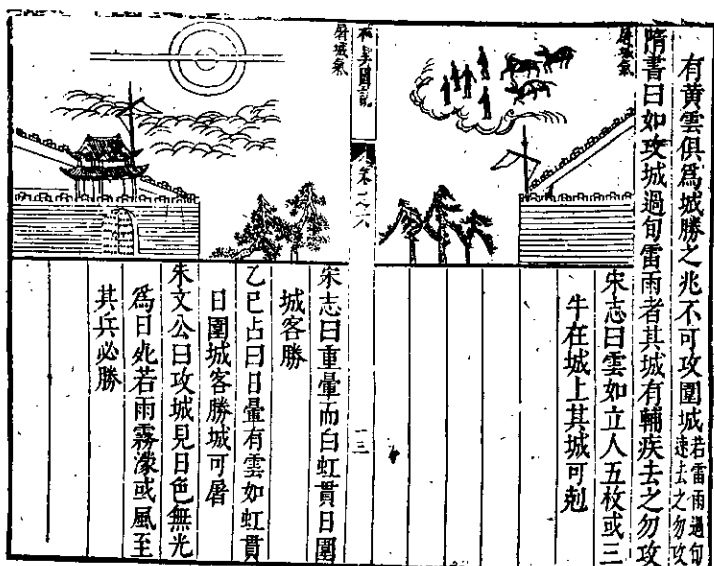 有黃雲俱爲城勝之兆不可攻圍城若雷雨過旬
速去之勿攻
隋書曰如攻城過旬雷雨者其城有輔疾去之勿攻
屠城氣
宋志曰雲如立人五枚或三
牛在城上其城可剋
卷之六
二三
屠城氣
宋志曰重暈而白虹貫日圍
城客勝
乙巳占曰日暈有雲如虹貫
日圍城客勝城可屠
朱文公曰攻城見日色無光
爲日死若雨霧濛或風至
其兵必勝